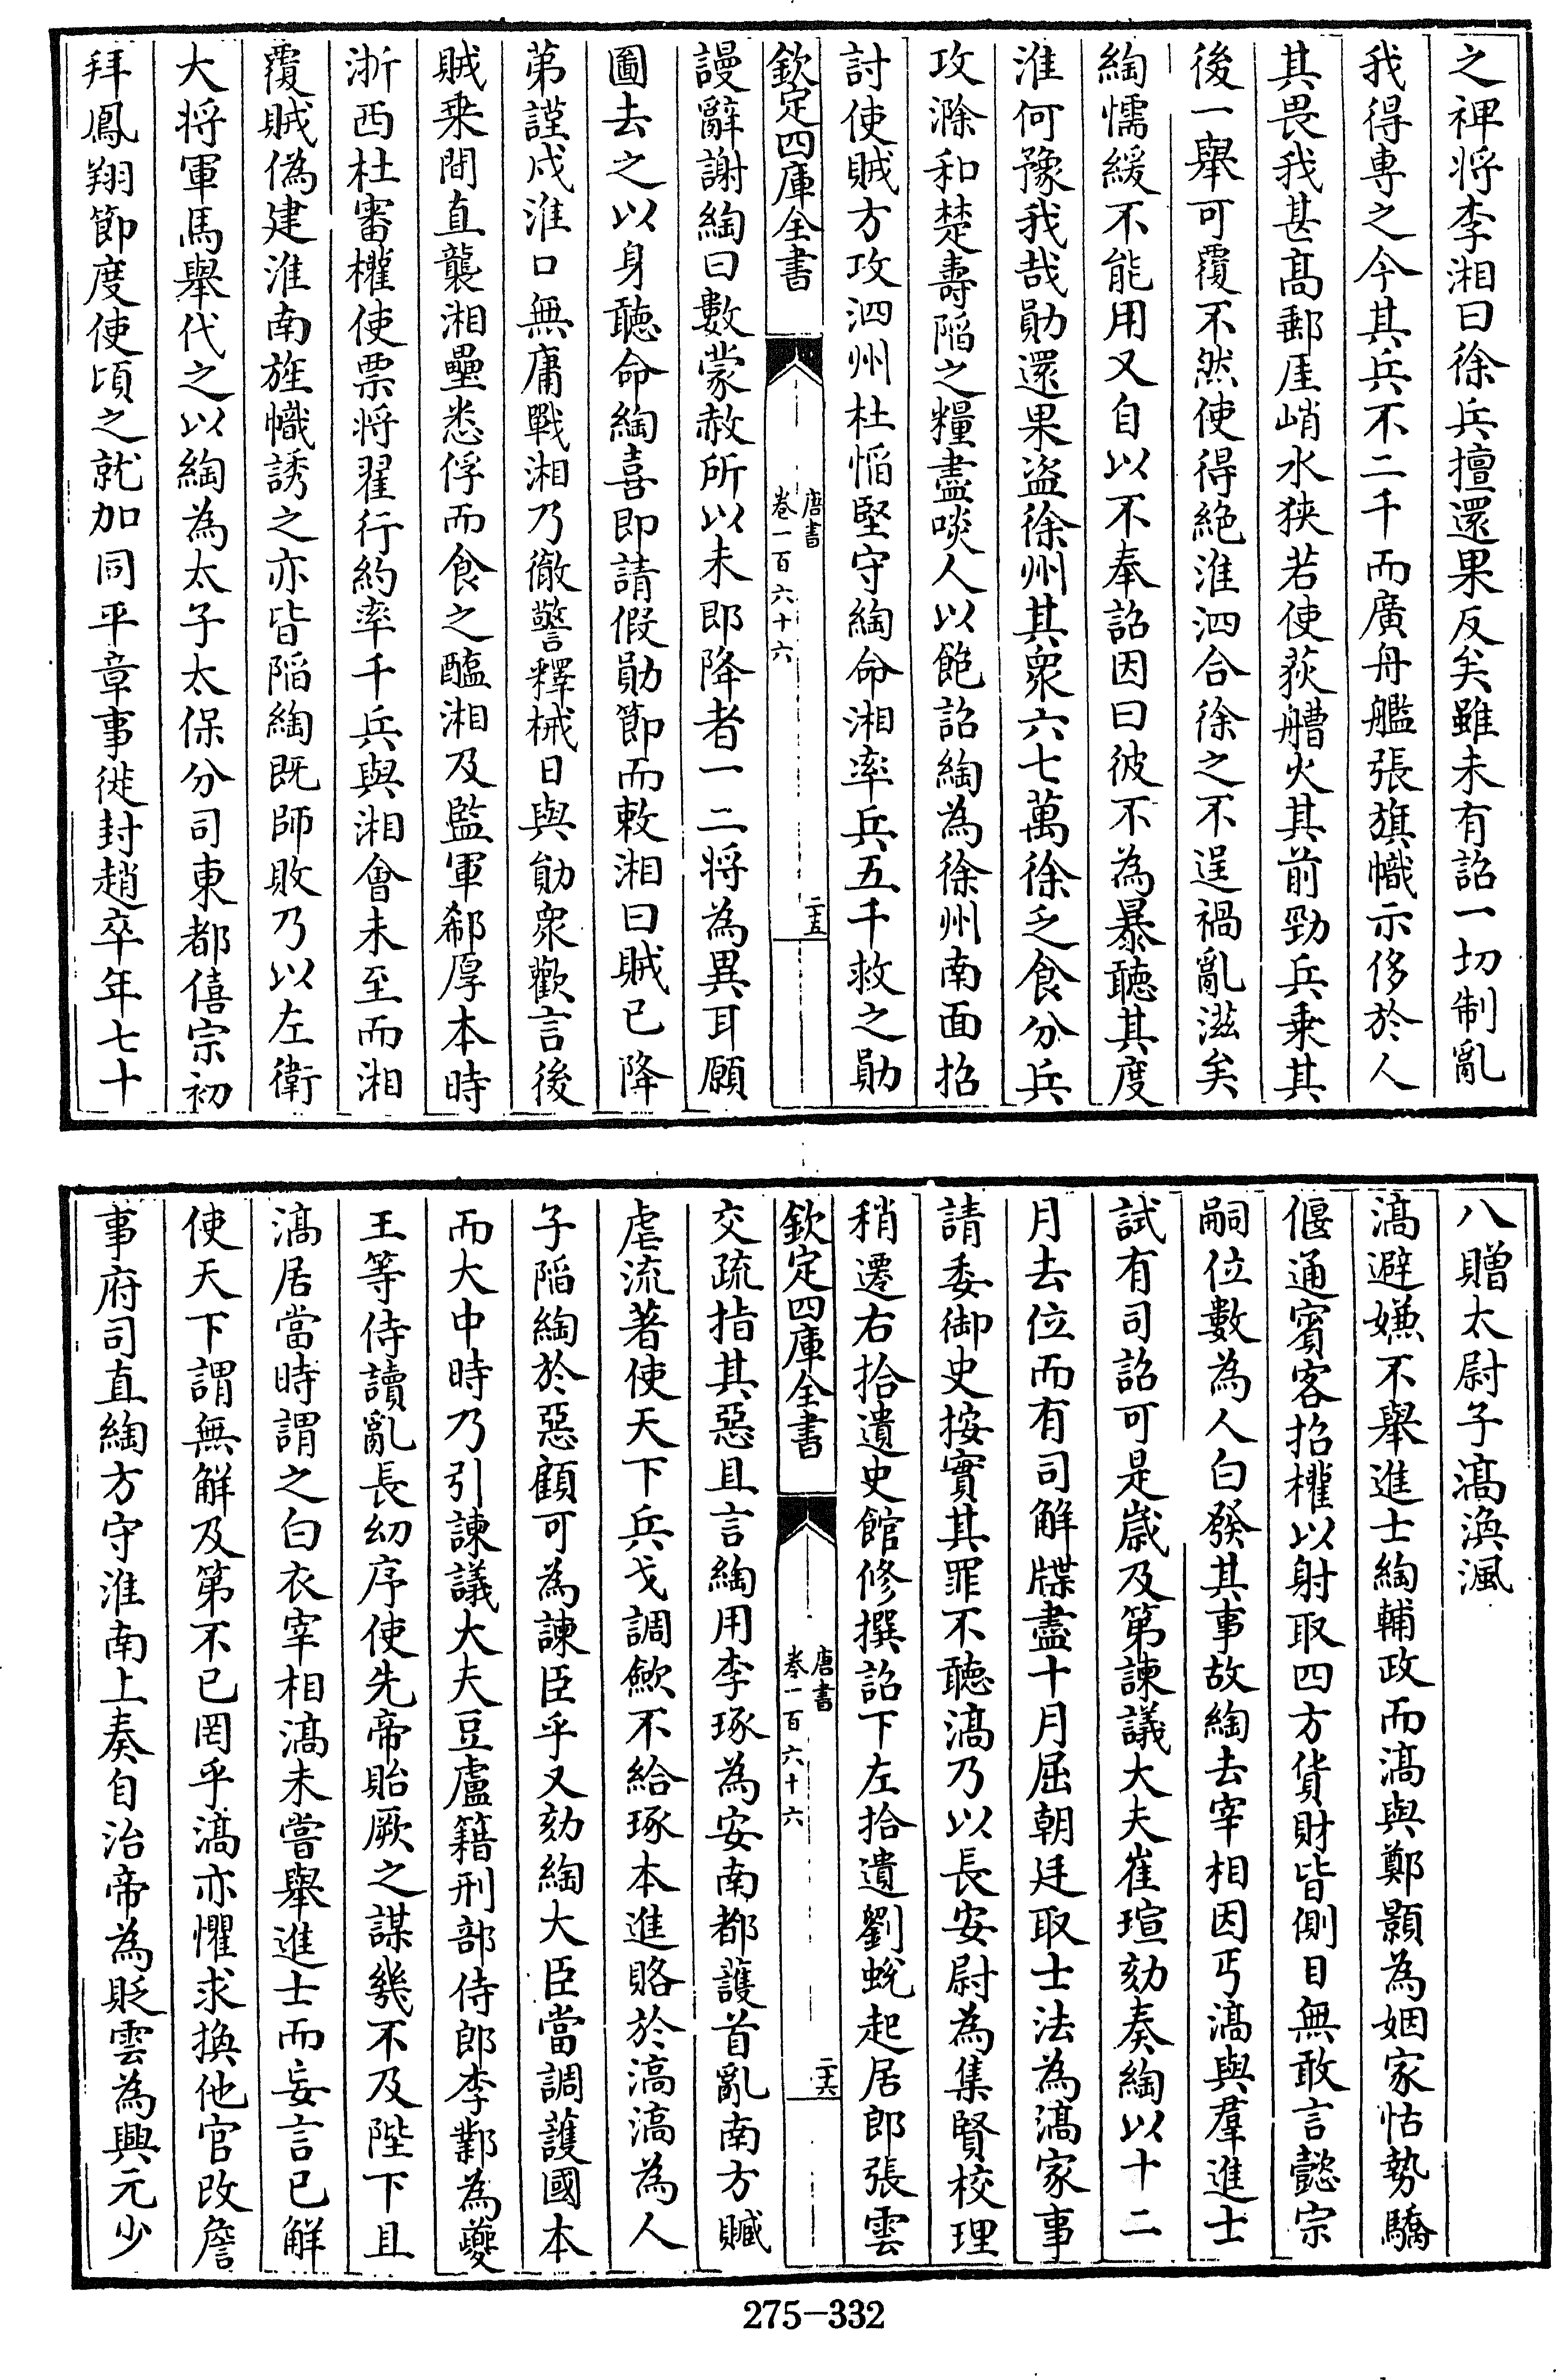 之裨将李湘曰徐兵擅還果反矣雖未有詔一切制亂
我得專之今其兵不二千而廣舟艦張旗幟示侈於人
其畏我甚髙郵厓峭水狭若使荻艚火其前勁兵乗其
後一舉可覆不然使得絶淮泗合徐之不逞禍亂滋矣
綯懦緩不能用又自以不奉詔因曰彼不為暴聽其度
淮何豫我哉勛還果盜徐州其衆六七萬徐乏食分兵
攻滁和楚壽陷之糧盡啖人以飽詔綯為徐州南面招
討使賊方攻泗州杜慆堅守綯命湘率兵五千救之勛
欽定四庫全書
唐書
卷一百六十六
二十五
謾辭謝綯曰數蒙赦所以未即降者一二将為異耳願
圖去之以身聽命綯喜即請假勛節而敕湘曰賊已降
第謹戍淮口無庸戰湘乃徹警釋械日與勛衆歡言後
賊乗間直襲湘壘悉俘而食之醢湘及監軍郗厚本時
浙西杜審權使票将翟行約率千兵與湘會未至而湘
覆賊偽建淮南旌幟誘之亦皆陷綯既師敗乃以左衛
大将軍馬舉代之以綯為太子太保分司東都僖宗初
拜鳳翔節度使頃之就加同平章事徙封趙卒年七十
八贈太尉子滈渙渢
滈避嫌不舉進士綯輔政而滈與鄭顥為姻家怙勢驕
偃通賓客招權以射取四方貨財皆側目無敢言懿宗
嗣位數為人白發其事故綯去宰相因丐滈與羣進士
試有司詔可是歳及第諫議大夫崔瑄劾奏綯以十二
月去位而有司解牒盡十月屈朝廷取士法為滈家事
請委御史按實其罪不聽滈乃以長安尉為集賢校理
稍遷右拾遺史館修撰詔下左拾遺劉蛻起居郎張雲
欽定四庫全書
唐書
卷一百六十六
二十六
交疏指其惡且言綯用李琢為安南都護首亂南方贓
虐流著使天下兵戈調歛不給琢本進賂於滈滈為人
子陷綯於惡顧可為諫臣乎又劾綯大臣當調護國本
而大中時乃引諫議大夫豆盧籍刑部侍郎李鄴為夔
王等侍讀亂長幼序使先帝貽厥之謀幾不及陛下且
滈居當時謂之白衣宰相滈未嘗舉進士而妄言已解
使天下謂無解及第不已罔乎滈亦懼求換他官改詹
事府司直綯方守淮南上奏自治帝為貶雲為興元少
275-332